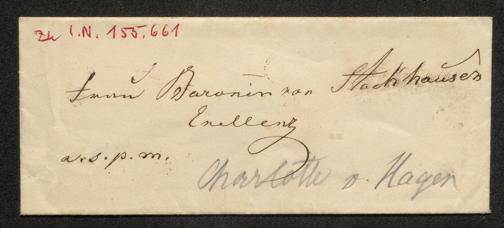 Zu I.N. 155.661
Frau Baronin von Stockhausen
Exellenz
a.s.p.m.
Charlotte v. Hagen